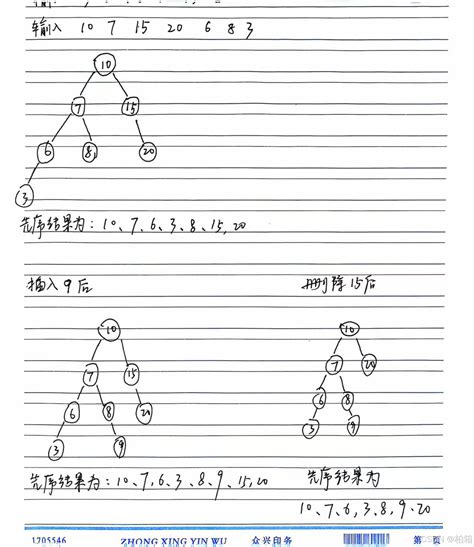 输入 10 7 15 20 6 8 3
10
7 15
6 8 20
3
先序结果为:10、7、6、3、8、15、20
插入9后 删除15后
10 10
7 15 7 20
6 8 20 6 8
3 9 3 9
先序结果为:10、7、6、3、8、9、15、20
先序结果为
10、7、6、3、8、9、20
1705546 ZHONG XING YIN WU 众兴印务 第 页
CSDN @柏箱